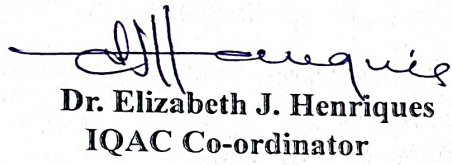 Dr. Elizabeth J. Henriques
IQAC Co-ordinator